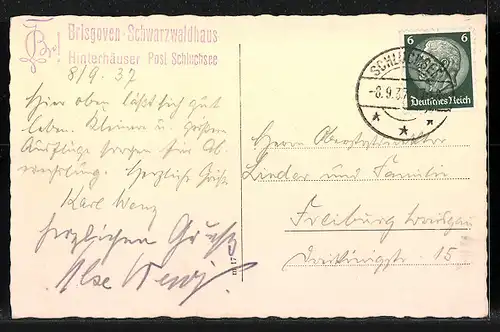 Brisgoven-Schwarzwaldhaus
Hinterhäuser Post Schluchsee
8/9. 37
Hier oben läßt sich gut
leben. Kleinere u. größere
Ausflüge sorgen für Ab-
wechslung. Herzliche Grüße
Karl Wenz
herzlichen Gruß
Ilse Wenz
6
Deutsches Reich
SCHLUCHSEE
-8.9.37
Herrn
und Familie
Freiburg Breisgau
Dreikönigstr. 15